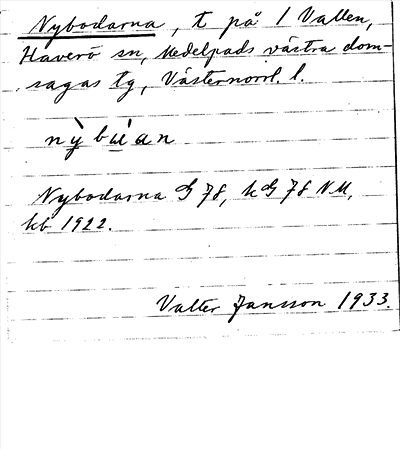 Nybodarna, t på 1 Vallen,
Haverö sn, Medelpads västra dom-
sagas tg, Västernorrl. l.
nỳbúan
Nybodarna G 78, kG 78 N.M,
kb 1922.
Valter Jansson 1933.